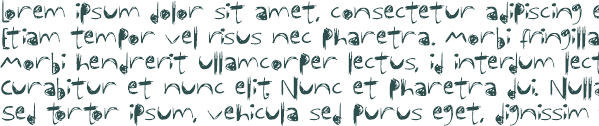 Lorem ipsum dolor sit amet, consectetur adipiscing e
Etiam tempor vel risus nec pharetra. Morbi fringilla
morbi hendrerit ullamcorper lectus, id interdum lect
Curabitur et nunc elit. Nunc et pharetra dui. Nulla
sed tortor ipsum, vehicula sed purus eget, dignissim